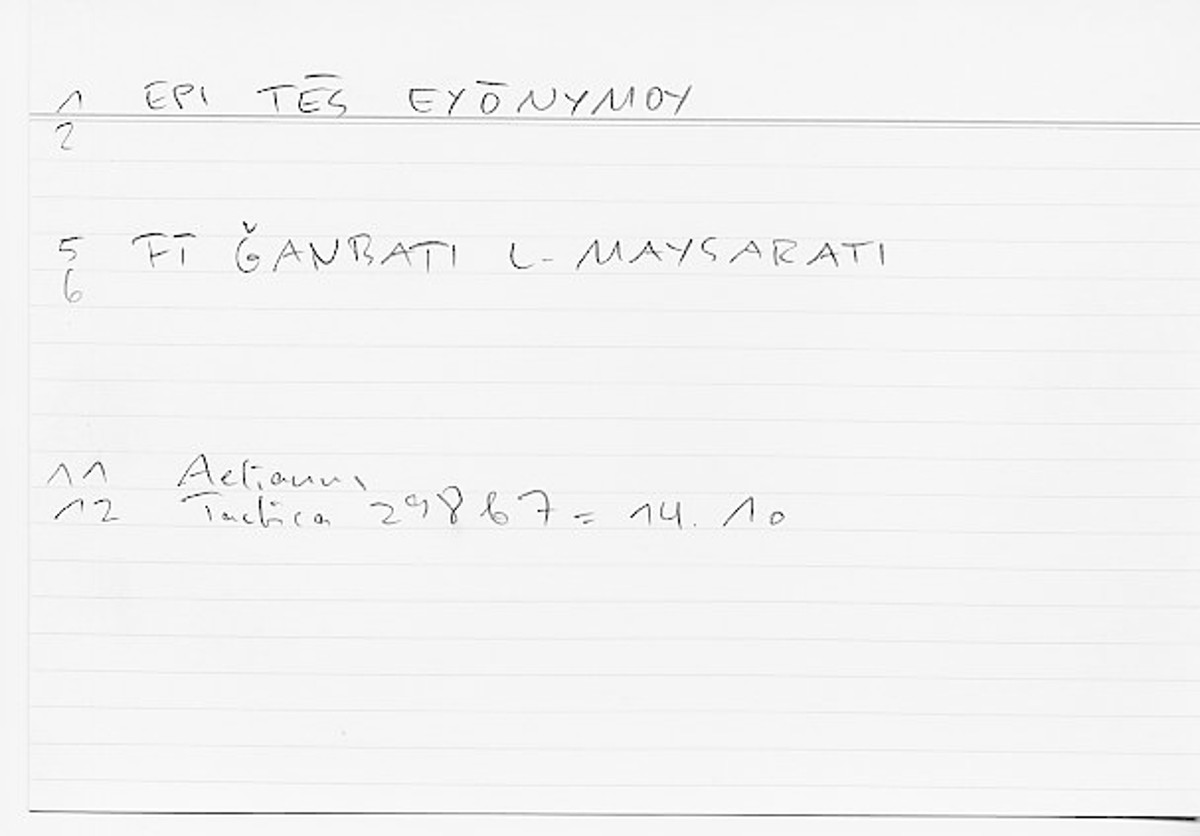 1 EPI TĒS EYŌNYMOY
2
5 FĪ ǦANBATI L-MAYSARATI
6
11 Aelianus
12 Tactica 29867 = 14.10